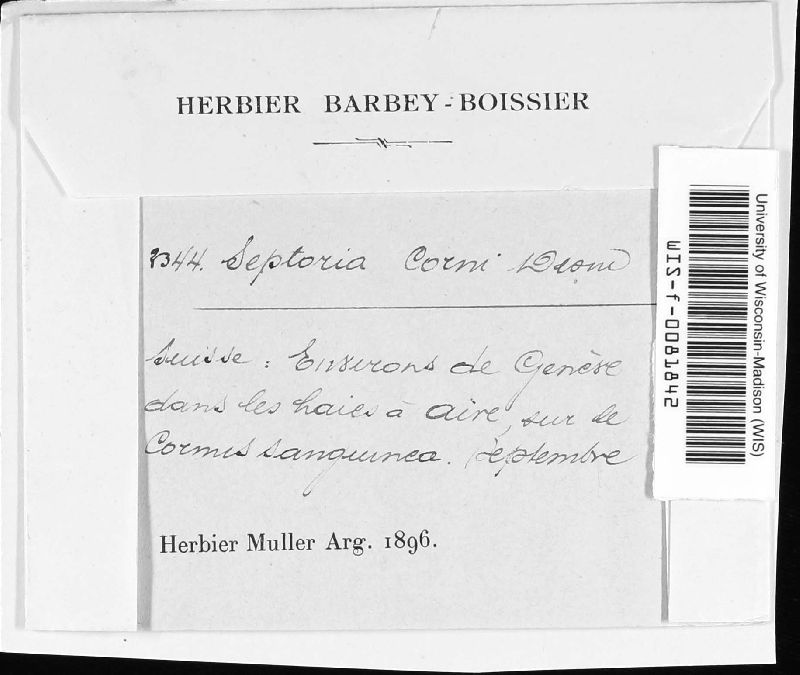 HERBIER BARBEY-BOISSIER
2344. Septoria Corni Desm
Suisse : Environs de Genève
dans les haies à Aïre, sur le
Cornus sanguinea. Septembre
Herbier Muller Arg. 1896.
University of Wisconsin-Madison (WIS)
WIS-f-0081842